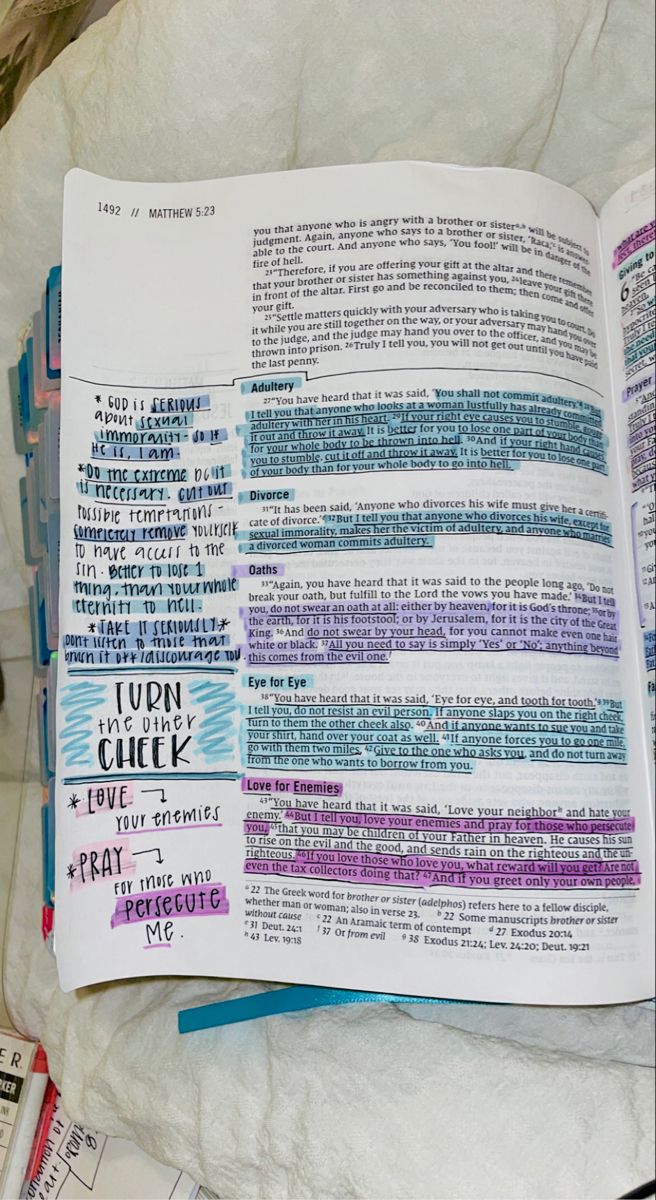 1492 // MATTHEW 5:23
you that anyone who is angry with a brother or sister ᵃ,ᵇ will be subject to
judgment. Again, anyone who says to a brother or sister, 'Raca,' ᶜ is answer-
able to the court. And anyone who says, 'You fool!' will be in danger of the
fire of hell.
23 "Therefore, if you are offering your gift at the altar and there remember
that your brother or sister has something against you, 24 leave your gift there
in front of the altar. First go and be reconciled to them; then come and offer
your gift.
25 "Settle matters quickly with your adversary who is taking you to court. Do
it while you are still together on the way, or your adversary may hand you over
to the judge, and the judge may hand you over to the officer, and you may be
thrown into prison. 26 Truly I tell you, you will not get out until you have paid
the last penny.
Adultery
27 "You have heard that it was said, 'You shall not commit adultery.' ᵈ 28 But
I tell you that anyone who looks at a woman lustfully has already committed
adultery with her in his heart. 29 If your right eye causes you to stumble, gouge
it out and throw it away. It is better for you to lose one part of your body than
for your whole body to be thrown into hell. 30 And if your right hand causes
you to stumble, cut it off and throw it away. It is better for you to lose one part
of your body than for your whole body to go into hell.
Divorce
31 "It has been said, 'Anyone who divorces his wife must give her a certifi-
cate of divorce.' ᵉ 32 But I tell you that anyone who divorces his wife, except for
sexual immorality, makes her the victim of adultery, and anyone who marries
a divorced woman commits adultery.
Oaths
33 "Again, you have heard that it was said to the people long ago, 'Do not
break your oath, but fulfill to the Lord the vows you have made.' 34 But I tell
you, do not swear an oath at all: either by heaven, for it is God's throne; 35 or by
the earth, for it is his footstool; or by Jerusalem, for it is the city of the Great
King. 36 And do not swear by your head, for you cannot make even one hair
white or black. 37 All you need to say is simply 'Yes' or 'No'; anything beyond
this comes from the evil one. ᶠ
Eye for Eye
38 "You have heard that it was said, 'Eye for eye, and tooth for tooth.' ᵍ 39 But
I tell you, do not resist an evil person. If anyone slaps you on the right cheek,
turn to them the other cheek also. 40 And if anyone wants to sue you and take
your shirt, hand over your coat as well. 41 If anyone forces you to go one mile,
go with them two miles. 42 Give to the one who asks you, and do not turn away
from the one who wants to borrow from you.
Love for Enemies
43 "You have heard that it was said, 'Love your neighbor ʰ and hate your
enemy.' 44 But I tell you, love your enemies and pray for those who persecute
you, 45 that you may be children of your Father in heaven. He causes his sun
to rise on the evil and the good, and sends rain on the righteous and the un-
righteous. 46 If you love those who love you, what reward will you get? Are not
even the tax collectors doing that? 47 And if you greet only your own people,
ᵃ 22 The Greek word for brother or sister (adelphos) refers here to a fellow disciple,
whether man or woman; also in verse 23. ᵇ 22 Some manuscripts brother or sister
without cause ᶜ 22 An Aramaic term of contempt ᵈ 27 Exodus 20:14
ᵉ 31 Deut. 24:1 ᶠ 37 Or from evil ᵍ 38 Exodus 21:24; Lev. 24:20; Deut. 19:21
ʰ 43 Lev. 19:18
* GOD is SERIOUS
about sexual
immorality - so if
He is, I am.
*DO the extreme bc it
is necessary. cut out
possible temptations -
completely remove yourself
to have access to the
sin. Better to lose 1
thing, than your whole
eternity to hell.
*TAKE IT SERIOUSLY*
Dont listen to those that
brush it off/discourage you
TURN
the other
CHEEK
* LOVE
your enemies
*PRAY
for those who
persecute
me.
Giving to
6
Prayer